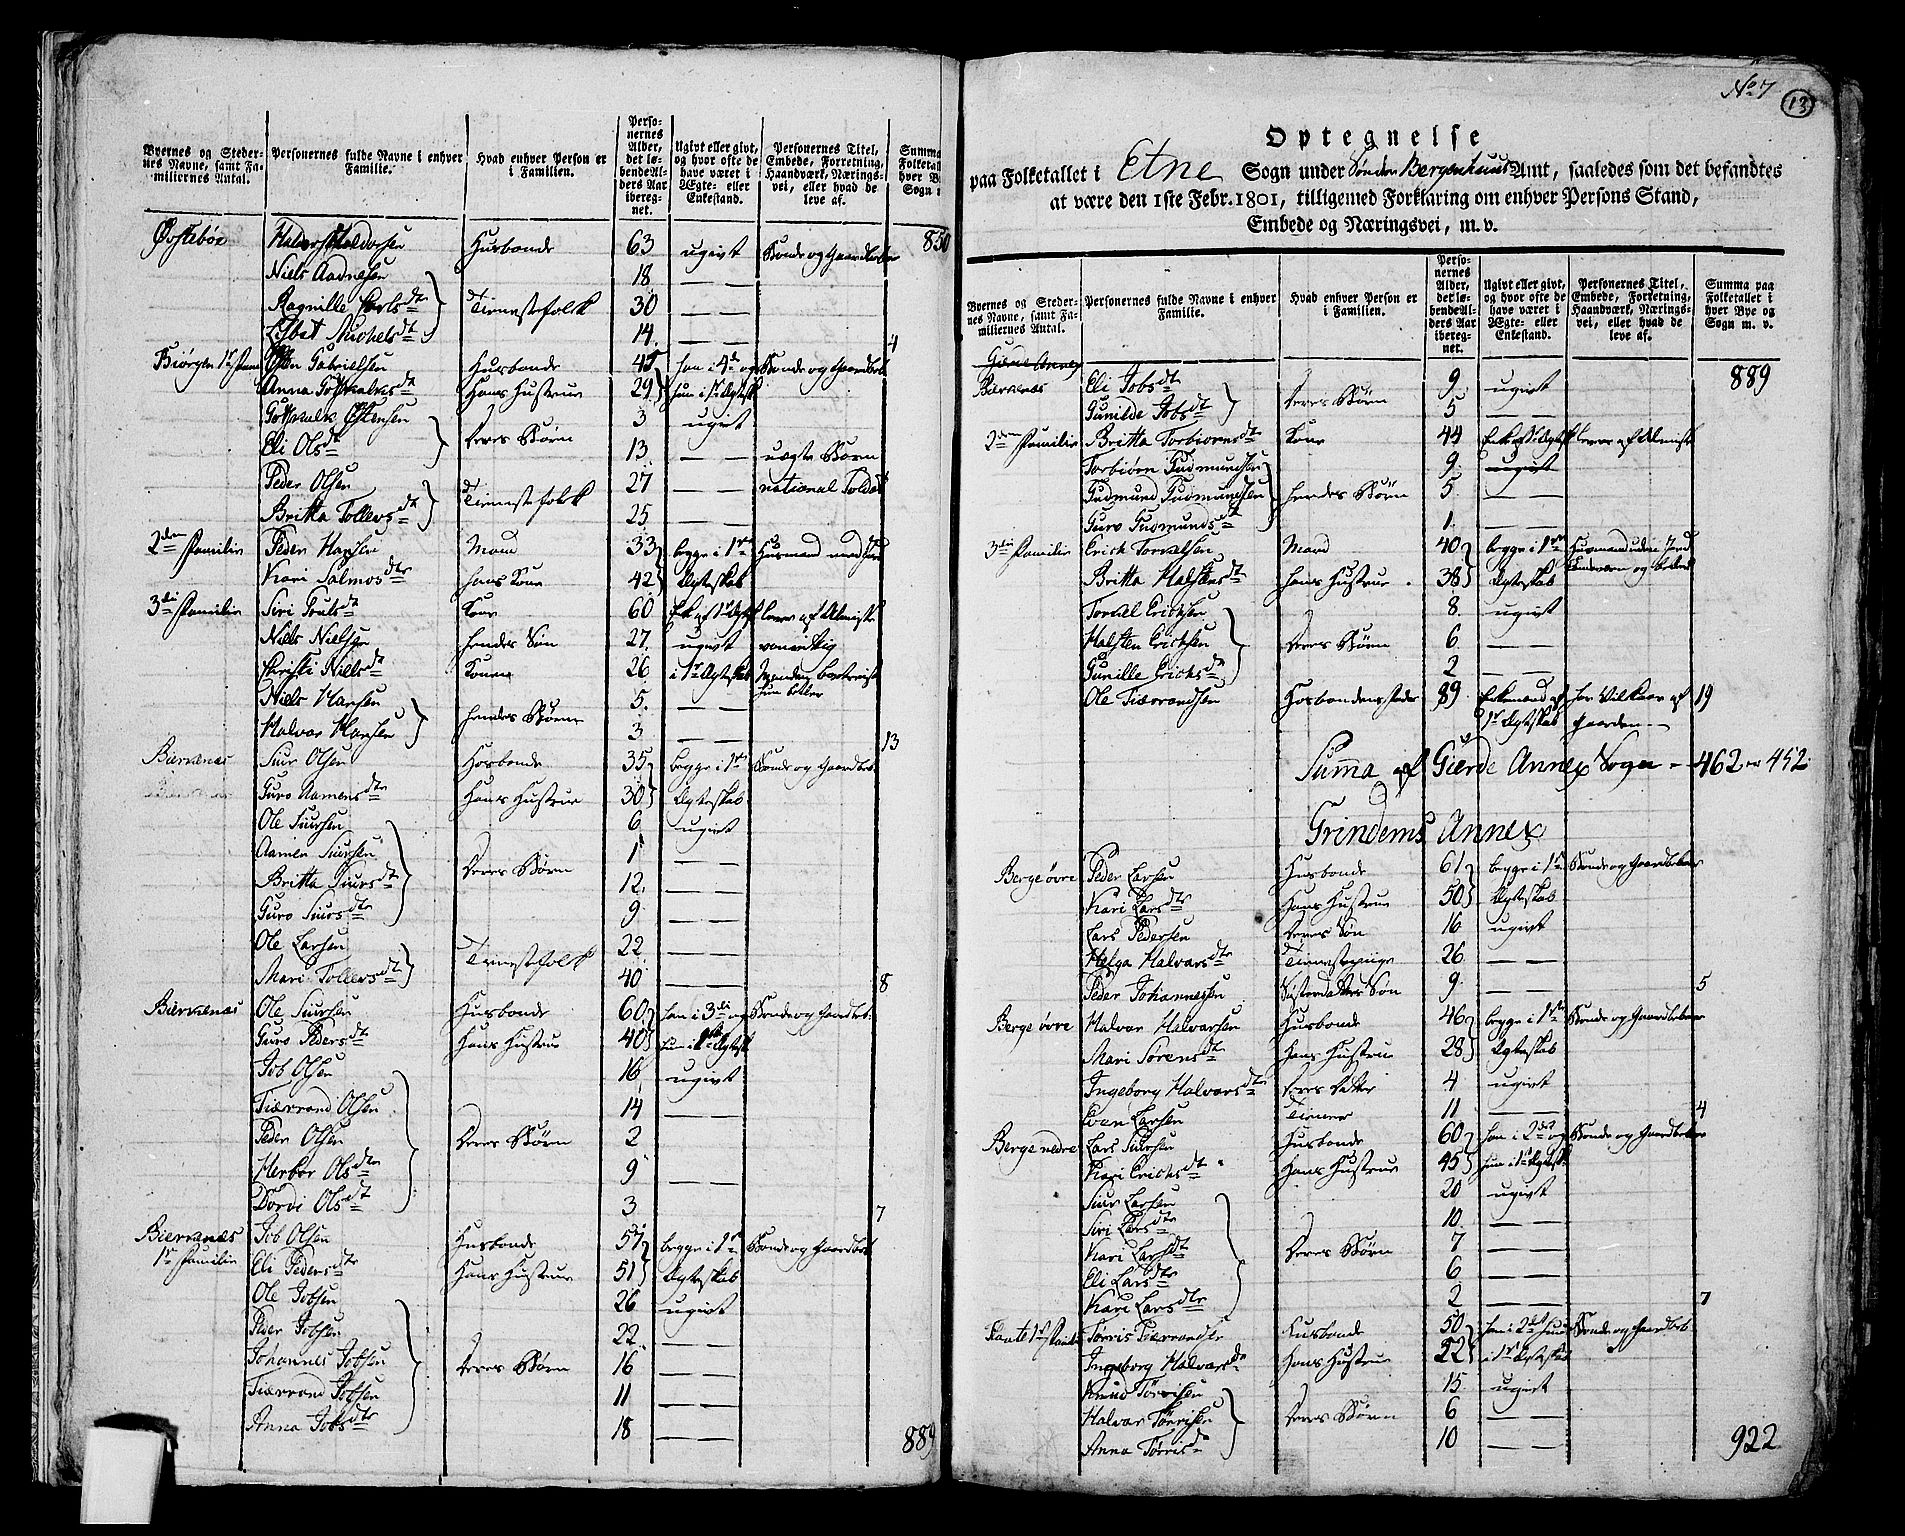 Byernes og Steder-
nes Navne, samt Fa-
miliernes Antal.
Personernes fulde Navne i enhver
Familie.
Hvad enhver Person er
i Familien.
Perso-
nernes
Alder,
det lø-
bende Al-
ders Aar
ibereg-
net.
Ugivt eller givt,
og hvor ofte de
have været i
Ægte- eller
Enkestand.
Personernes Titel,
Embede, Forretning,
Haandværk, Nærings-
vei, eller hvad de
leve af.
Summa
Folketal
hver By
Sogn
Halvor Haldorsen Husbonde 63 ugivt Bonde og Gaardbeboer 850
Niels Aadnesen 18 — —
Ragnille Karlsdtr Tienestefolk 30 — —
Lisbet Michelsdtr 14 — — 4
Biørgen 1ste Familie Østen Gabrielsen Husbonde 45 han i 4de og Bonde og Gaardbeb
Anna Gotskalksdtr Hans Hustrue 29 hun i 1ste Ægtesk
Gotskalk Østensen 3 ugivt
Eli Olsdt Deres Børn 13 — — uægte Børn
Peder Olsen 27 — — national Soldat
Britta Tollevsdt Tienestefolk 25 — —
2den Familie Peder Hansen Mand 33 begge i 1ste Huusmand med Jord
Kari Salmosdtr hans Kone 42 Ægteskab
3die Familie Siri Trulsdt Kone 60 lever af Almisse
Niels Nielsen hendes Søn 27 ugivt vanvittig
Christi Nielsdt Konen 26 i 1ste Ægteskab
Niels Hansen 5 — —
Halvor Hansen hendes Børn 3 — — 13
Biervenæs Siur Olsen Hosbonde 35 begge i 1ste Bonde og Gaardbeb.
Guro Aamensdtr Hans Hustrue 30 Ægteskab
Ole Siursen 6 ugivt
Aamen Siursen 1 — —
Britta Siursdt Deres Børn 12 — —
Guro Siursdt 9 — —
Ole Larsen 22 — —
Mari Tollevsdt Tienestefolk 40 — — 8
Biervenæs Ole Siursen Husbonde 60 han i 3die og Bonde og Gaardbeb.
Guro Pedersdt Hans Hustrue 40 hun i 1ste Ægtesk
Job Olsen 16 ugivt
Tiærrand Olsen 14 — —
Peder Olsen Deres Børn 2 — —
Herbor Olsdtr 9 — —
Dordi Olsdt 3 — — 7
Biervenæs Job Olsen Husbonde 57 begge i 1ste Bonde og Gaardbeb
1ste Familie Eli Pedersdt Hans Hustrue 51 Ægteskab
Ole Jobsen 26 ugivt
Peder Jobsen 22 — —
Johannes Jobsen Deres Børn 16 — —
Tiærrand Jobsen 11 — —
Anna Jobsdtr 18 — — 889
No 7 13
Optegnelse
paa Folketallet i Etne Sogn under Sønder Bergenhuus Amt, saaledes som det befandtes
at være den 1ste Febr. 1801, tilligemed Forklaring om enhver Persons Stand,
Embede og Næringsvei, m. v.
Byernes og Steder-
nes Navne, samt Fa-
miliernes Antal.
Personernes fulde Navne i enhver
Familie.
Hvad enhver Person er
i Familien.
Perso-
nernes
Alder,
det lø-
bende Al-
ders Aar
ibereg-
net.
Ugivt eller givt,
og hvor ofte de
have været i
Ægte- eller
Enkestand.
Personernes Titel,
Embede, Forretning,
Haandværk, Nærings-
vei, eller hvad de
leve af.
Summa paa
Folketallet i
hver Bye og
Sogn m. v.
Gierde Annex
Biervenæs Eli Jobsdt 9 ugivt 889
Gunilde Jobsdt Deres Børn 5 — —
2den Familie Britta Torbiørnsdt Kone 44 lever af Almisse
Torbiørn Gudmundsen 9 ugivt
Gudmund Gudmundsen hendes Børn 5 — —
Guro Gudmundsdt 1 — —
3die Familie Erich Torvalsen Mand 40 begge i 1ste Huusmand uden Jord
Britta Halstensdt hans Hustrue 38 Ægteskab
Torval Erichsen 8 ugivt
Halsten Erichsen Deres Børn 6 — —
Gunille Erichsdt 2 — —
Ole Tiærrandsen Hosbondens fader 89 Enkemand af har Vilkaar af 19
1ste Ægteskab Gaarden
Suma af Gierde Annex Sogn — 462 452
Grindems Annex
Berge øvre Peder Larsen Husbonde 61 begge i 1ste Bonde og Gaardbeboer
Kari Larsdtr Hans Hustrue 50 Ægteskab
Lars Pedersen Deres Søn 16 ugivt
Helga Halvorsdtr Tienestepige 26 — —
Peder Johannesen Søsterdatters Søn 9 — — 5
Berge øvre Halvor Halvorsen Husbonde 46 begge i 1ste Bonde og Gaardbeboer
Mari Sørensdt Hans Hustrue 28 Ægteskab
Ingeborg Halvorsdtr Deres Datter 4 ugivt
Even Larsen Tiener 11 — — 4
Berge nedre Lars Siursen Husbonde 60 han i 2det og Bonde og Gaardbeboer
Kari Erichsdt Hans Hustrue 45 hun i 1ste Ægtesk
Siur Larsen 20 ugivt
Siri Larsdtr 10 — —
Kari Larsdt Deres Børn 7 — —
Eli Larsdtr 6 — —
Kari Larsdtr 2 — — 7
Flaate 1ste Familie Tørris Tiærrandsen Husbonde 50 han i 2det hun Bonde og Gaardbeb
Ingeborg Halvorsdtr Hans Hustrue 52 i 1ste Ægteskab
Knud Tørrisen 15 ugivt
Halvor Tørrisen Deres Børn 6 — —
Anna Tørrisdtr 10 — — 922